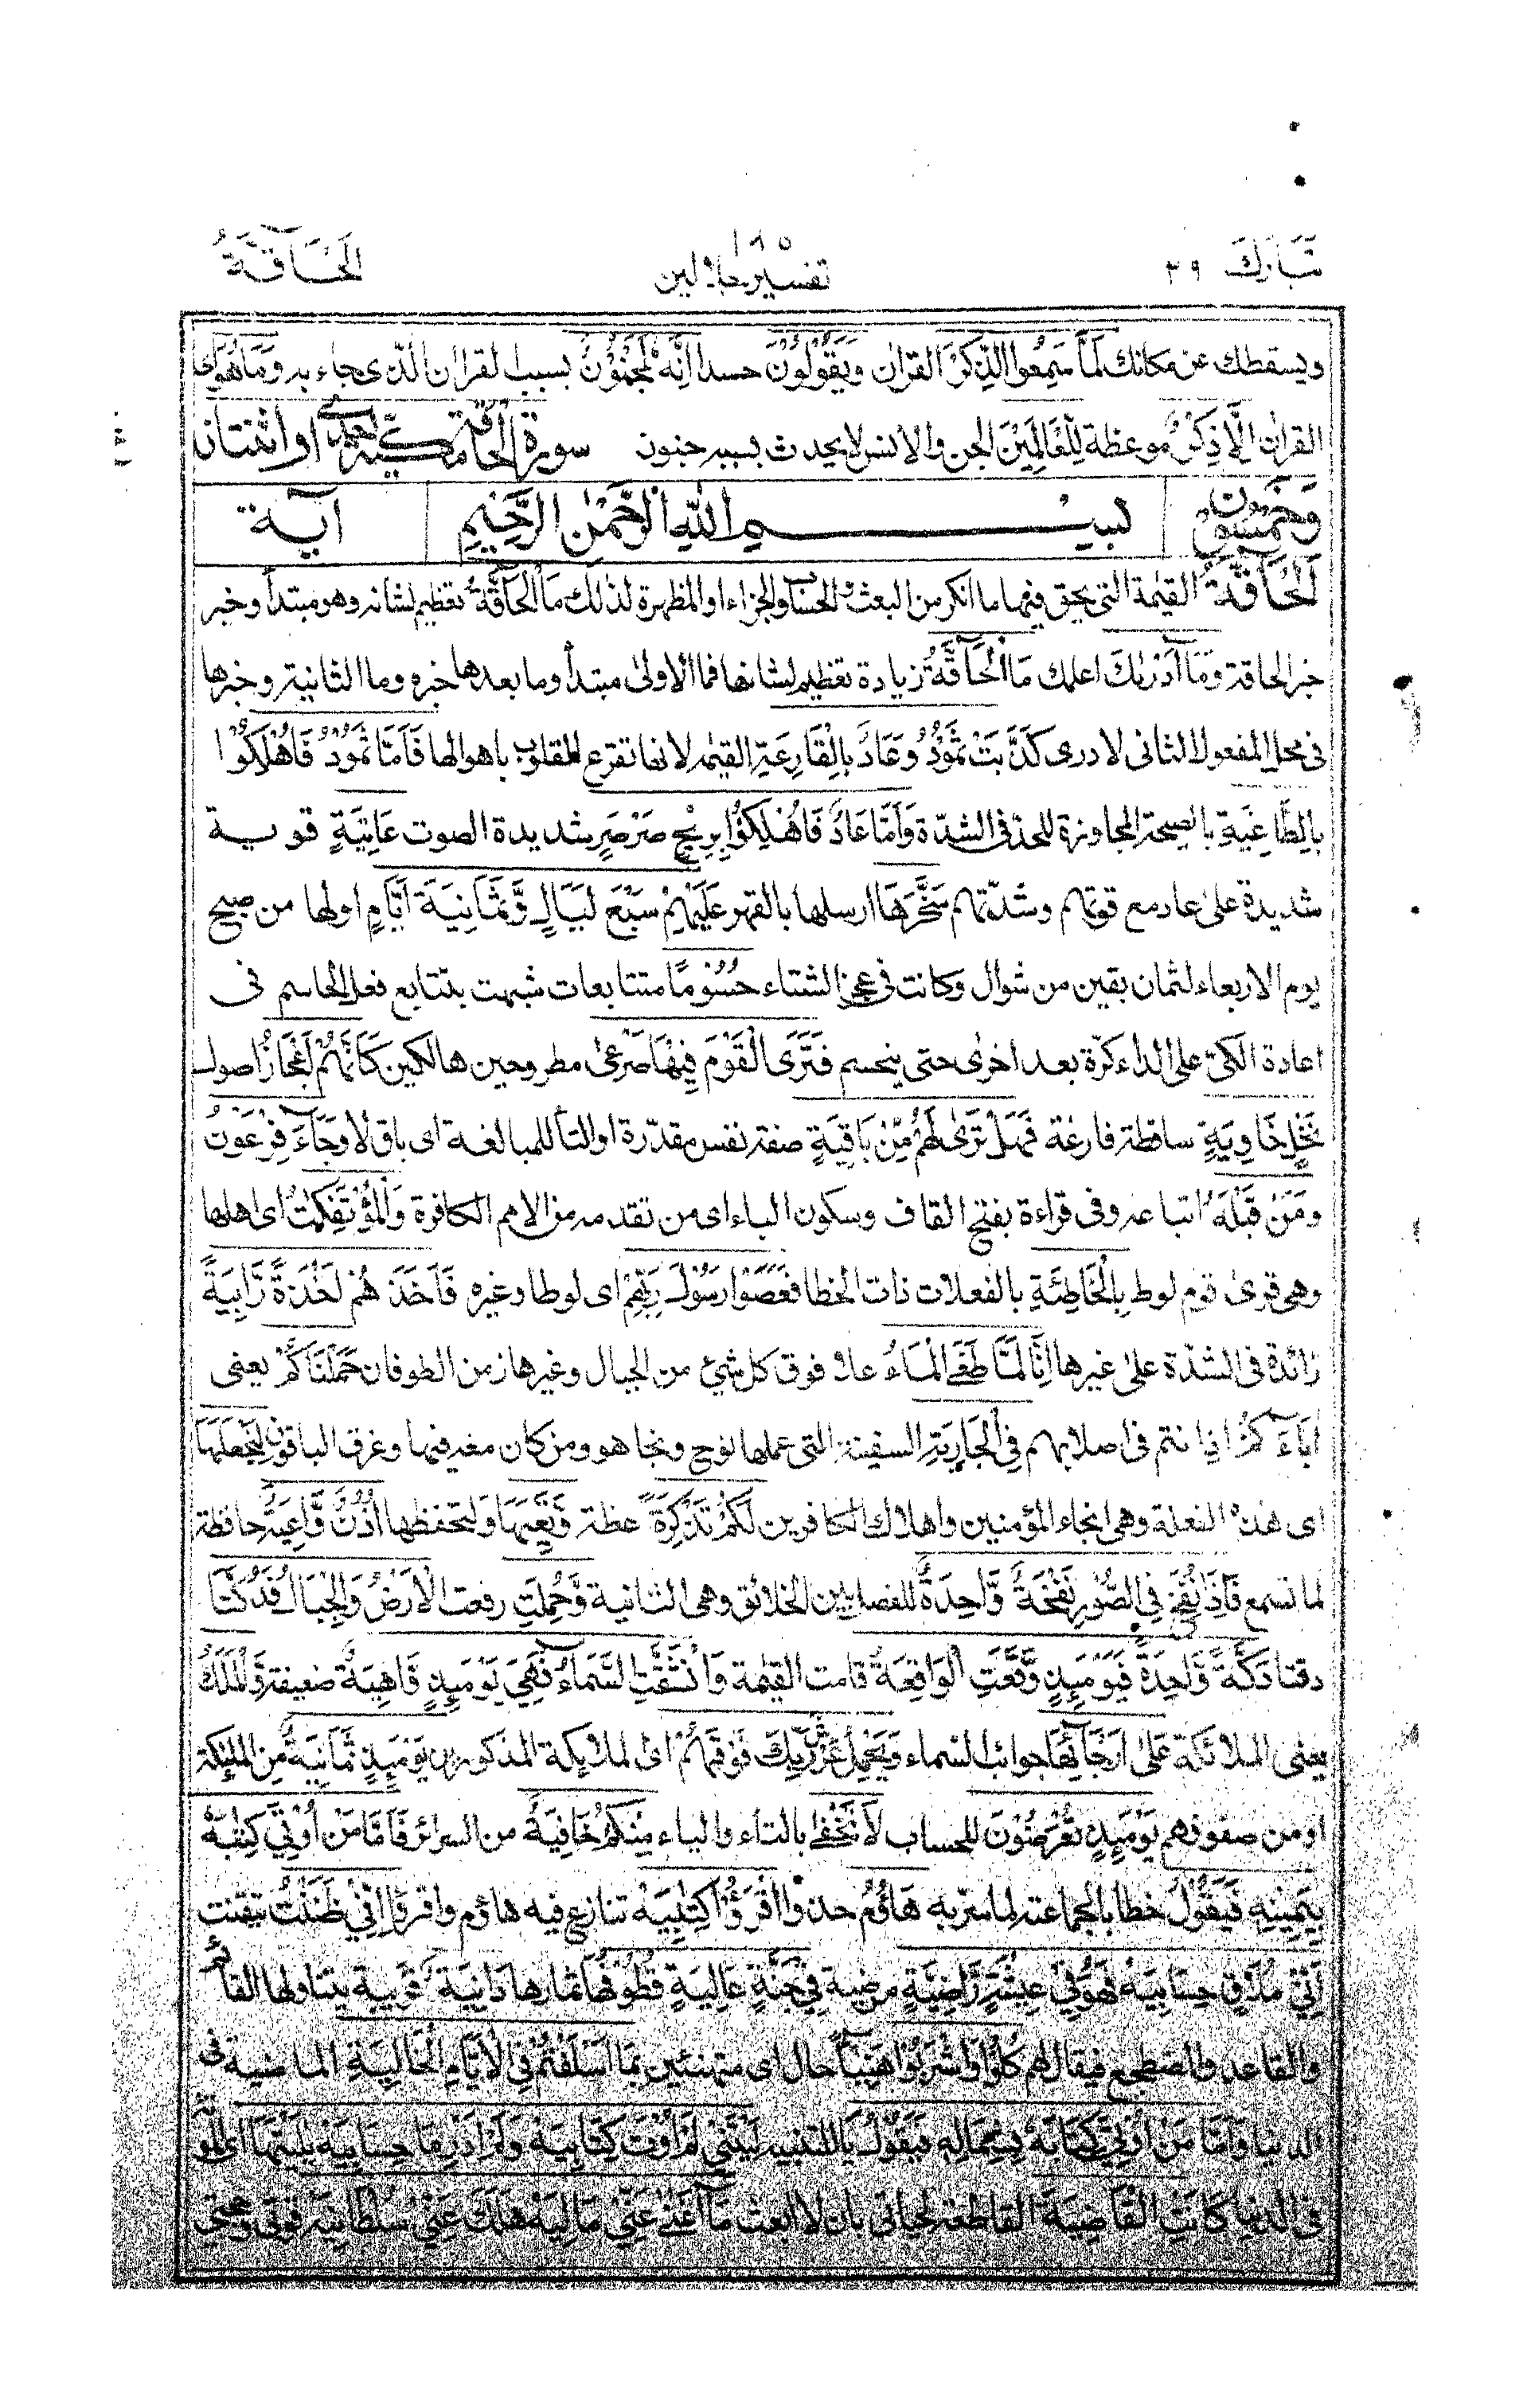 تَبَارَكَ ٢٩
١٨٥
تفسير جلالين
اَلْحَآقَّةُ
ويسقطك عن مكانك لَمَّا سَمِعُوا الذِّكْرَ القراٰن وَيَقُوْلُوْنَ حسدا اِنَّهٗ لَمَجْنُوْنٌ بسبب القراٰن الّذى جاء به وَمَا هُوَ اى
القراٰن اِلَّا ذِكْرٌ موعظة لِّلْعَالَمِيْنَ الجن والانس لا يحدث بسببه جنون سورة الحاقة مكيّة احدى او اثنتان
وَخَمْسُوْنَ بِسْــــمِ اللّٰهِ الرَّحْمٰنِ الرَّحِيْمِ آية
اَلْحَآقَّةُ القيٰمة التى يحق فيها ما انكر من البعث والحساب والجزاء او المظهرة لذٰلك مَا الْحَآقَّةُ تعظيم لشانه وهو مبتدأ وخبر
خبر الحاقة وَمَآ اَدْرٰىكَ اعلمك مَا الْحَآقَّةُ زيادة تعظيم لشانها فما الاولىٰ مبتدأ وما بعدها خبره وما الثانية وخبرها
فى محل المفعول الثانى لادرى كَذَّبَتْ ثَمُوْدُ وَعَادٌۢ بِالْقَارِعَةِ القيٰمة لانها تقرع القلوب باهوالها فَاَمَّا ثَمُوْدُ فَاُهْلِكُوْا
بِالطَّاغِيَةِ بالصيحة المجاوزة للحد فى الشدّة وَاَمَّا عَادٌ فَاُهْلِكُوْا بِرِيْحٍ صَرْصَرٍ شديدة الصوت عَاتِيَةٍ قوية
شديدة علىٰ عاد مع قوتهم وشدّتهم سَخَّرَهَا ارسلها بالقهر عَلَيْهِمْ سَبْعَ لَيَالٍ وَّثَمَانِيَةَ اَيَّامٍ اولها من صبح
يوم الاربعاء لثمان بقين من شوال وكانت فى عجز الشتاء حُسُوْمًا متتابعات شبهت بتتابع فعل الحاسم فى
اعادة الكىّ على الداء كرّة بعد اخرىٰ حتى ينحسم فَتَرَى الْقَوْمَ فِيْهَا صَرْعىٰ مطروحين هالكين كَاَنَّهُمْ اَعْجَازُ اصول
نَخْلٍ خَاوِيَةٍ ساقطة فارغة فَهَلْ تَرٰى لَهُمْ مِّنْۢ بَاقِيَةٍ صفة نفس مقدّرة او التأ للمبالغة اى باق لا وَجَآءَ فِرْعَوْنُ
وَمَنْ قَبْلَهٗ اتباعه وفى قراءة بفتح القاف وسكون الباء اى من تقدمه من الامم الكافرة وَالْمُؤْتَفِكٰتُ اى اهلها
وهى قرى قوم لوط بِالْخَاطِئَةِ بالفعلات ذات الخطا فَعَصَوْا رَسُوْلَ رَبِّهِمْ اى لوطا وغيره فَاَخَذَهُمْ اَخْذَةً رَّابِيَةً
زائدة فى الشدّة علىٰ غيرها اِنَّا لَمَّا طَغَى الْمَآءُ علا فوق كل شئ من الجبال وغيرها زمن الطوفان حَمَلْنٰكُمْ يعنى
اٰبَآءَكُمْ اذا نتم فى اصلابهم فِى الْجَارِيَةِ السفينة التى عملها نوح ونجا هو ومن كان معه فيها وغرق الباقون لِنَجْعَلَهَا
اى هذه الفعلة وهى انجاء المؤمنين واهلاك الكافرين لَكُمْ تَذْكِرَةً عظة وَّتَعِيَهَا ولتحفظها اُذُنٌ وَّاعِيَةٌ حافظة
لما تسمع فَاِذَا نُفِخَ فِى الصُّوْرِ نَفْخَةٌ وَّاحِدَةٌ للفصل بين الخلائق وهى الثانية وَّحُمِلَتِ رفعت الْاَرْضُ وَالْجِبَالُ فَدُكَّتَا
دقتا دَكَّةً وَّاحِدَةً فَيَوْمَئِذٍ وَّقَعَتِ الْوَاقِعَةُ قامت القيٰمة وَانْشَقَّتِ السَّمَآءُ فَهِىَ يَوْمَئِذٍ وَّاهِيَةٌ ضعيفة وَّالْمَلَكُ
يعنى الملائكة عَلٰى اَرْجَآئِهَا جوانب السماء وَيَحْمِلُ عَرْشَ رَبِّكَ فَوْقَهُمْ اى الملايكة المذكورين يَوْمَئِذٍ ثَمَانِيَةٌ من الملئكة
او من صفوفهم يَوْمَئِذٍ تُعْرَضُوْنَ للحساب لَا تَخْفٰى بالتاء والياء مِنْكُمْ خَافِيَةٌ من السرائر فَاَمَّا مَنْ اُوْتِىَ كِتٰبَهٗ
بِيَمِيْنِهٖ فَيَقُوْلُ خطابا لجماعته لما سرّبه هَآؤُمُ خذوا اقْرَءُوْا كِتٰبِيَهْ تنازع فيه هاؤم واقرؤا اِنِّىْ ظَنَنْتُ تيقنت
اَنِّىْ مُلٰقٍ حِسَابِيَهْ فَهُوَ فِىْ عِيْشَةٍ رَّاضِيَةٍ مرضية فِىْ جَنَّةٍ عَالِيَةٍ قُطُوْفُهَا ثمارها دَانِيَةٌ قريبة يتناولها القائم
والقاعد والمضطجع فيقال لهم كُلُوْا وَاشْرَبُوْا هَنِيْٓئًا حال اى متهنئين بِمَآ اَسْلَفْتُمْ فِى الْاَيَّامِ الْخَالِيَةِ الماضية فى
الدنيا وَاَمَّا مَنْ اُوْتِىَ كِتٰبَهٗ بِشِمَالِهٖ فَيَقُوْلُ يا للتنبيه لَيْتَنِىْ لَمْ اُوْتَ كِتٰبِيَهْ وَلَمْ اَدْرِ مَا حِسَابِيَهْ يٰلَيْتَهَا اى الموتة
فى الدنيا كَانَتِ الْقَاضِيَةَ القاطعة لحياتى بان لا ابعث مَآ اَغْنٰى عَنِّىْ مَالِيَهْ هَلَكَ عَنِّىْ سُلْطَانِيَهْ قوتى وحجتى